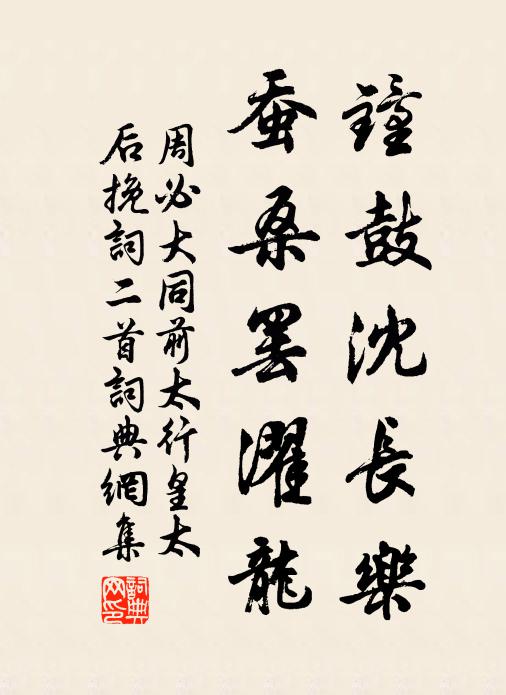 鐘鼓沈長樂
蚕桑罢濯龍
周必大同前太行皇太
后挽詞二首詞典網集
詞典网印